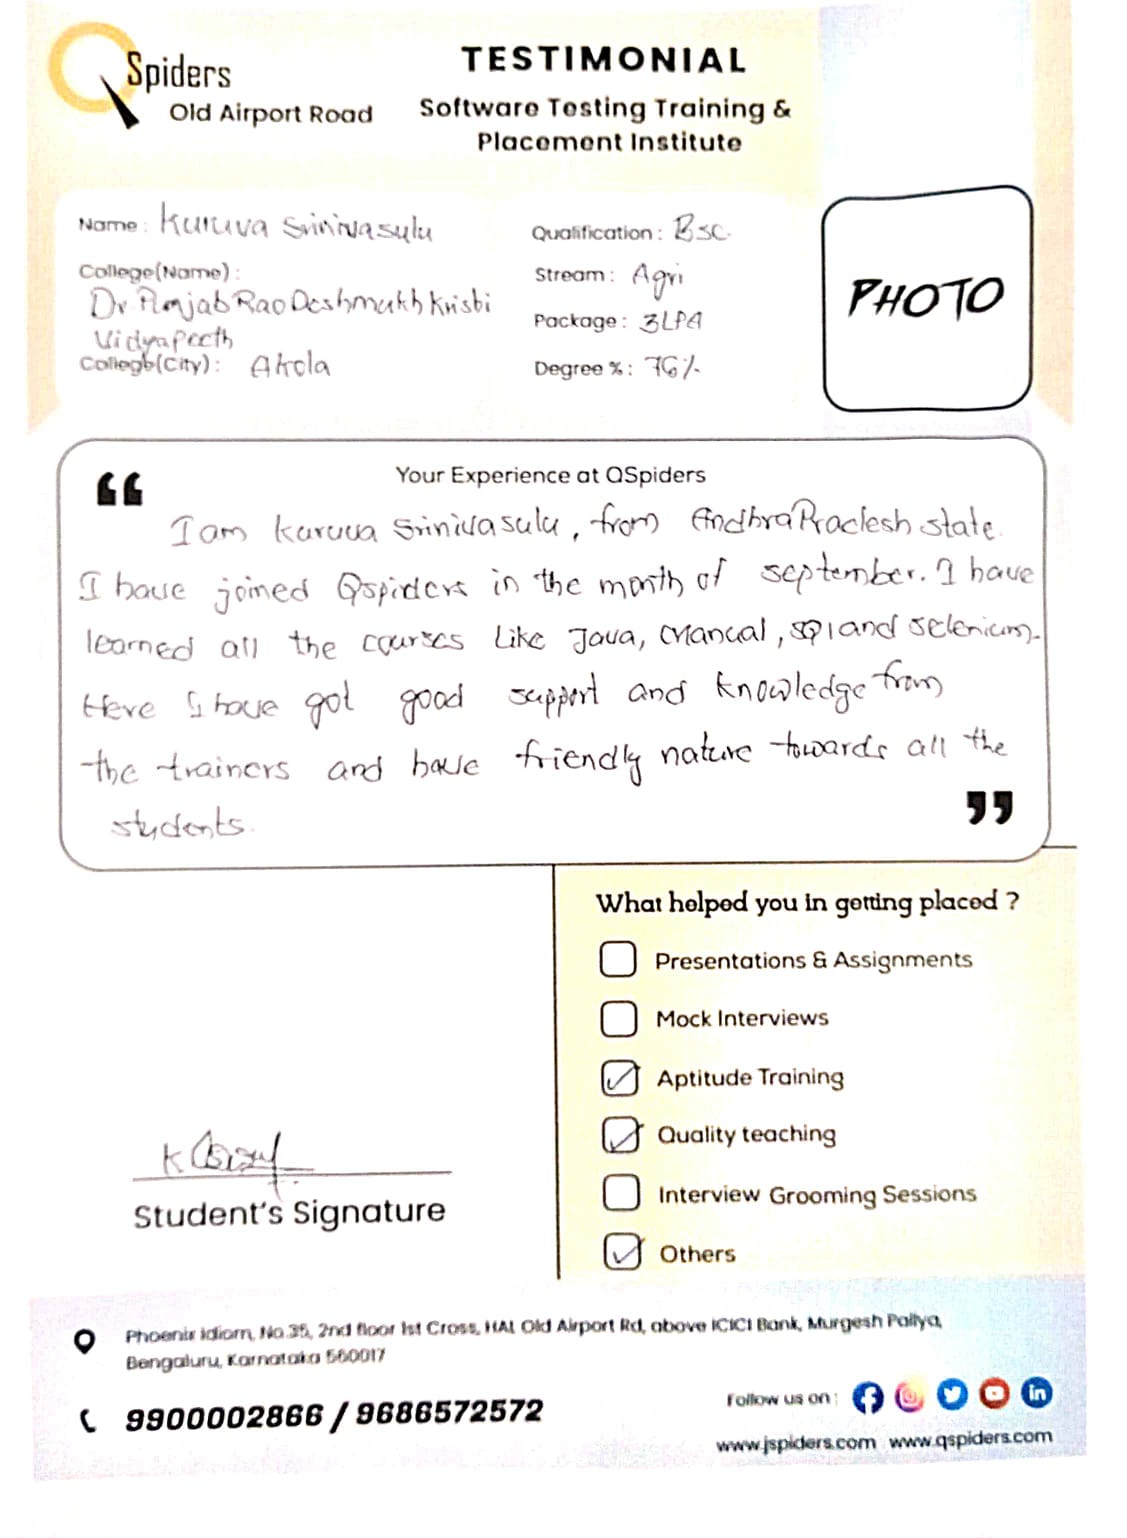 QSpiders
Old Airport Road
TESTIMONIAL
Software Testing Training &
Placement Institute
Name : Kuruva Srinivasulu
College(Name) :
Dr. Panjab Rao Deshmukh Krishi
Vidya Peeth
College(City) : Akola
Qualification : Bsc.
Stream : Agri
Package : 3LPA
Degree % : 76%
PHOTO
Your Experience at QSpiders
I am Kuruva Srinivasulu, from Andhra Pradesh state.
I have joined Qspiders in the month of september. I have
learned all the courses like Java, Manual, sql and selenium.
Here I have got good support and knowledge from
the trainers and have friendly nature towards all the
students.
What helped you in getting placed ?
Presentations & Assignments
Mock Interviews
Aptitude Training
Quality teaching
Interview Grooming Sessions
Others
Student's Signature
Phoenix Idiom, No.35, 2nd floor 1st Cross, HAL Old Airport Rd, above ICICI Bank, Murgesh Pallya,
Bengaluru, Karnataka 560017
9900002866 / 9686572572
Follow us on :
www.jspiders.com www.qspiders.com